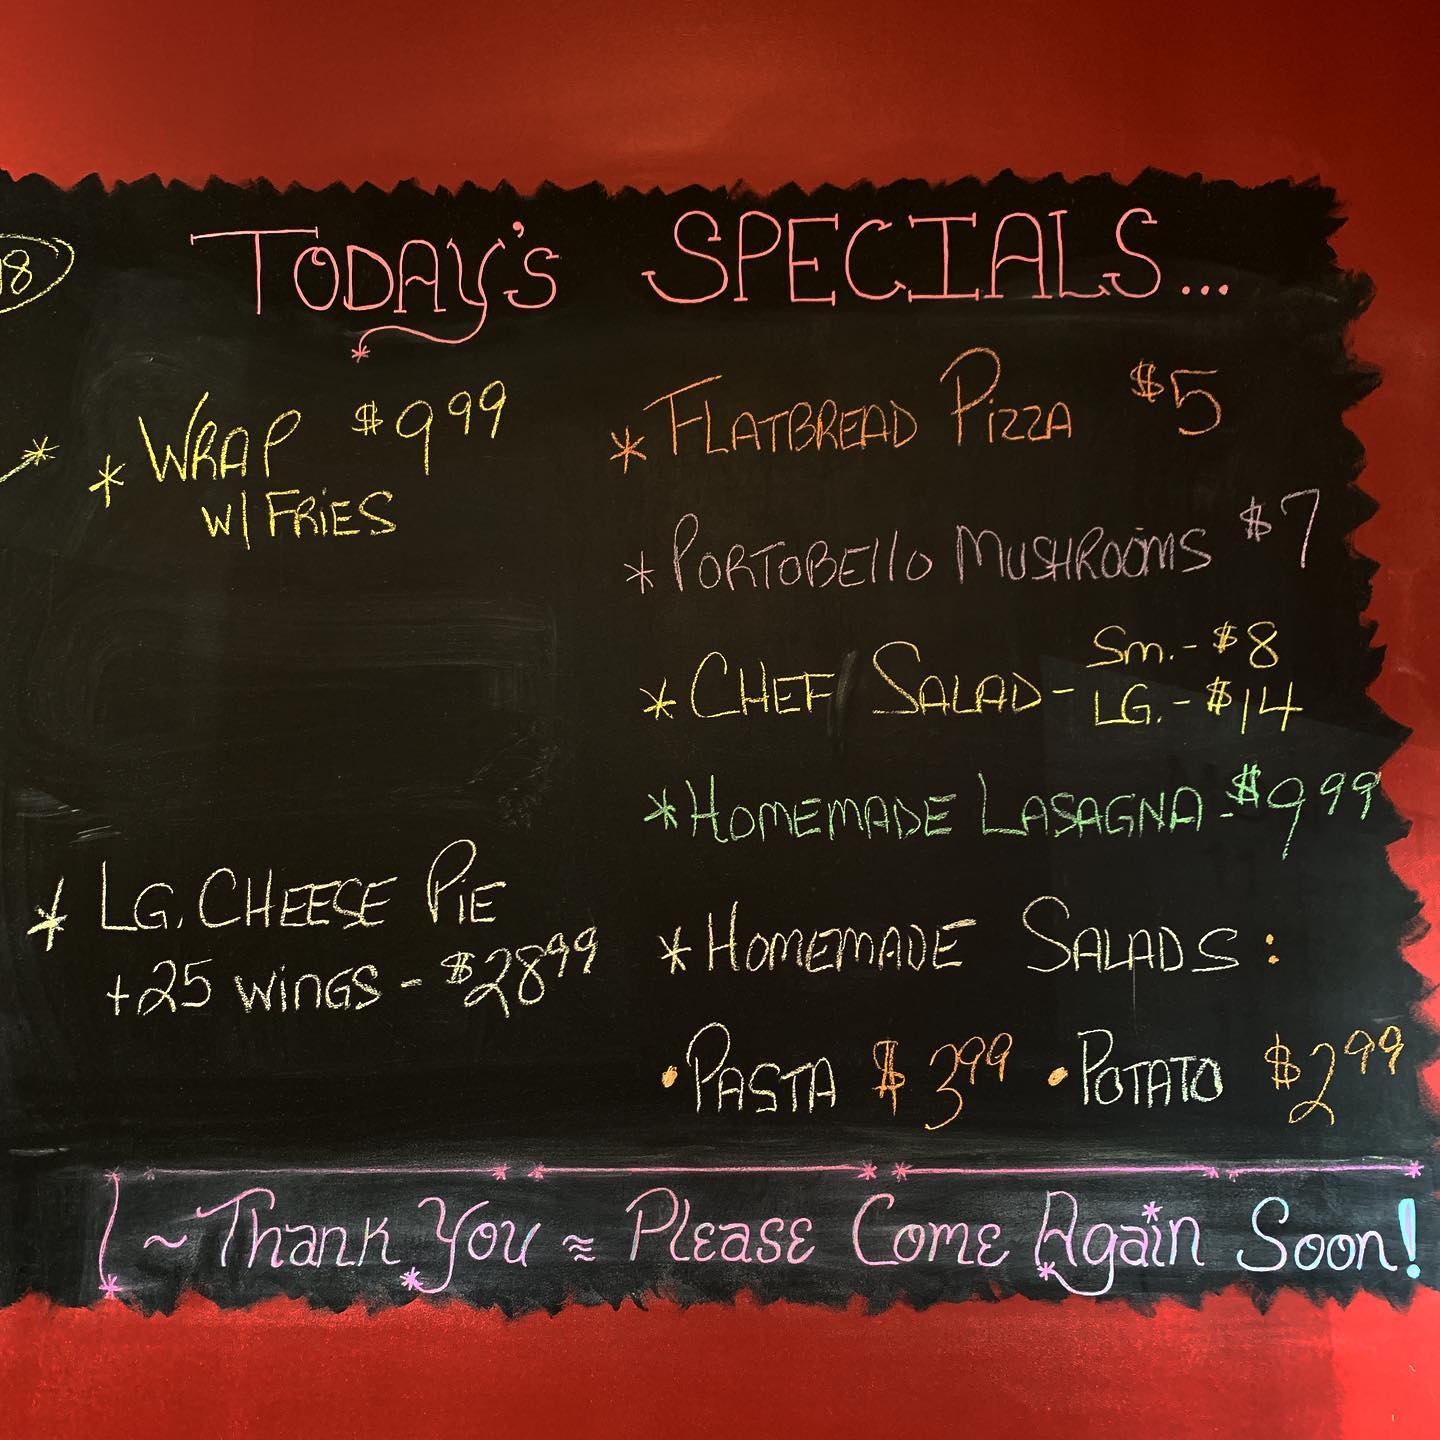 TODAY'S SPECIALS...
8
* WRAP $9.99
W/ FRIES
* LG. CHEESE PIE
+25 WINGS - $28.99
* FLATBREAD PIZZA $5
* PORTOBELLO MUSHROOMS $7
* CHEF SALAD - Sm. - $8
LG. - $14
* HOMEMADE LASAGNA - $9.99
* HOMEMADE SALADS:
• PASTA $3.99 • POTATO $2.99
~ Thank You ≈ Please Come Again Soon!